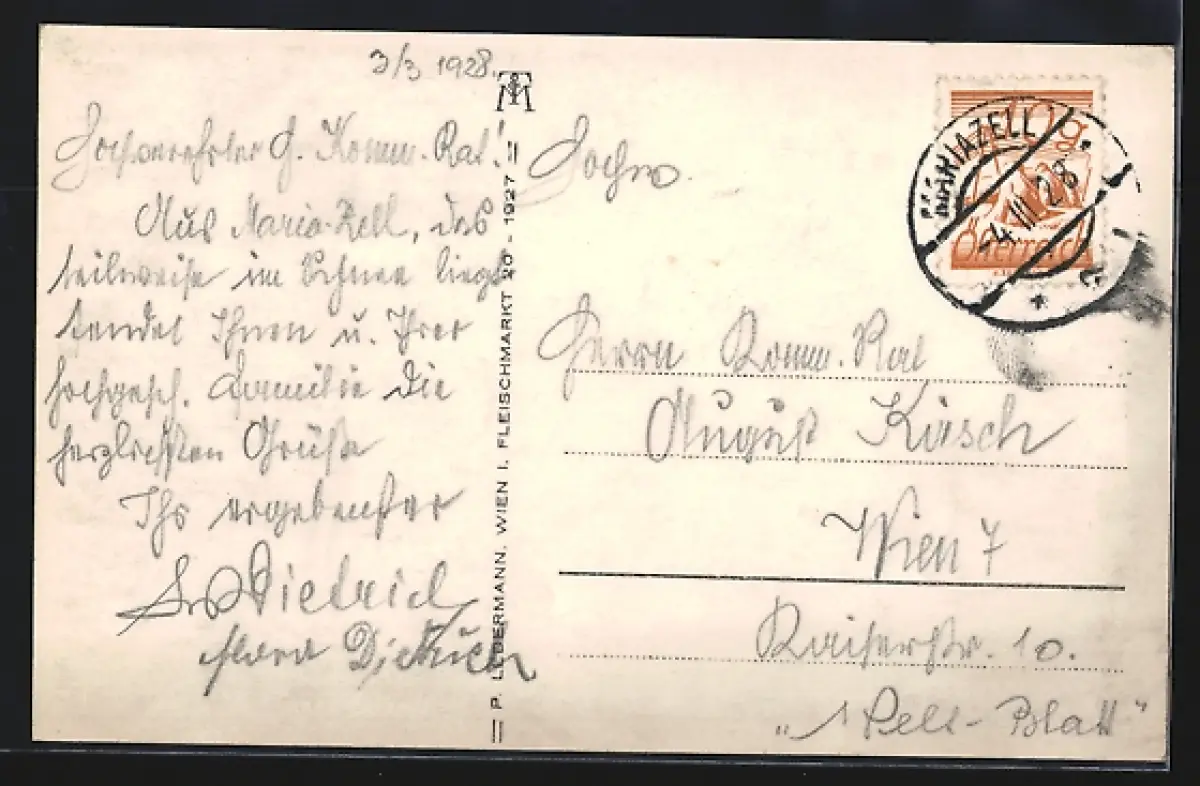 3/3 1928.
Hochverehrter H. Komm. Rat!
Aus Maria-Zell, das
teilweise im Schnee liegt
sendet Ihnen u. Ihrer
hochgesch. Familie die
herzlichsten Grüße
Ihr ergebenster
Dietrich
Dietrich
P. LEDERMANN, WIEN I, FLEISCHMARKT 20 - 1927
Hochw.
MARIAZELL
-4.III.28
10 g
Österreich
Herrn Komm. Rat
August Kirsch
Wien 7
Kaiserstr. 10.